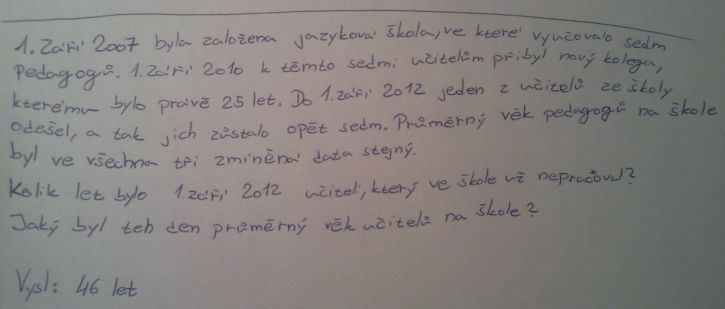 1. Září 2007 byla založena jazyková škola, ve které vyučovalo sedm
Pedagogů. 1. Září 2010 k těmto sedmi učitelům přibyl nový kolega,
kterému bylo právě 25 let. Do 1. září 2012 jeden z učitelů ze školy
odešel, a tak jich zůstalo opět sedm. Průměrný věk pedagogů na škole
byl ve všechna tři zmíněná data stejný.
Kolik let bylo 1. září 2012 učiteli, který ve škole už nepracoval?
Jaký byl teh den průměrný věk učitelů na škole?
Vysl: 46 let